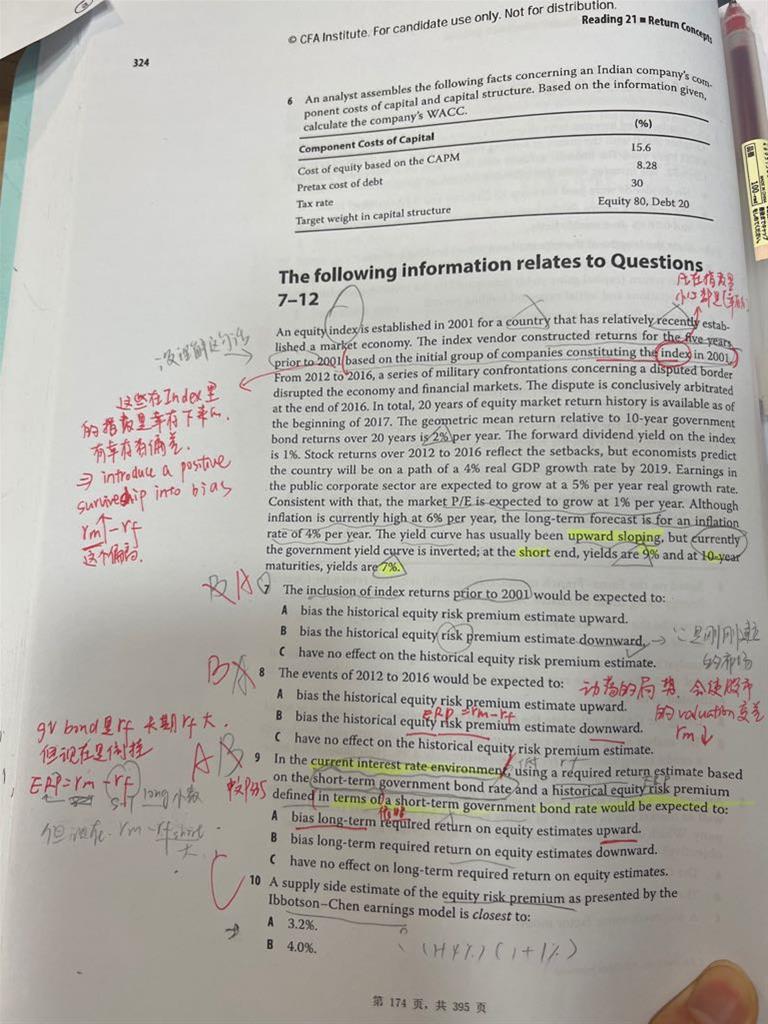 © CFA Institute. For candidate use only. Not for distribution.
Reading 21 ■ Return Concepts
324
6 An analyst assembles the following facts concerning an Indian company's com-
ponent costs of capital and capital structure. Based on the information given,
calculate the company's WACC.
Component Costs of Capital (%)
Cost of equity based on the CAPM 15.6
Pretax cost of debt 8.28
Tax rate 30
Target weight in capital structure Equity 80, Debt 20
The following information relates to Questions
7–12
An equity index is established in 2001 for a country that has relatively recently estab-
lished a market economy. The index vendor constructed returns for the five years
prior to 2001 based on the initial group of companies constituting the index in 2001.
From 2012 to 2016, a series of military confrontations concerning a disputed border
disrupted the economy and financial markets. The dispute is conclusively arbitrated
at the end of 2016. In total, 20 years of equity market return history is available as of
the beginning of 2017. The geometric mean return relative to 10-year government
bond returns over 20 years is 2% per year. The forward dividend yield on the index
is 1%. Stock returns over 2012 to 2016 reflect the setbacks, but economists predict
the country will be on a path of a 4% real GDP growth rate by 2019. Earnings in
the public corporate sector are expected to grow at a 5% per year real growth rate.
Consistent with that, the market P/E is expected to grow at 1% per year. Although
inflation is currently high at 6% per year, the long-term forecast is for an inflation
rate of 4% per year. The yield curve has usually been upward sloping, but currently
the government yield curve is inverted; at the short end, yields are 9% and at 10-year
maturities, yields are 7%.
这些在Index里
的指数是幸存下来的.
有幸存者偏差.
⇒ introduce a positive
survivship into bias
rm - rf
7 The inclusion of index returns prior to 2001 would be expected to:
A bias the historical equity risk premium estimate upward.
B bias the historical equity risk premium estimate downward.
C have no effect on the historical equity risk premium estimate.
B A
8 The events of 2012 to 2016 would be expected to:
A bias the historical equity risk premium estimate upward.
B bias the historical equity risk premium estimate downward.
C have no effect on the historical equity risk premium estimate.
动荡的局势. 会使股市
的 valuation 变差
rm ↓
ERP = rm - rf
A B
9 In the current interest rate environment, using a required return estimate based
on the short-term government bond rate and a historical equity risk premium
defined in terms of a short-term government bond rate would be expected to:
A bias long-term required return on equity estimates upward.
B bias long-term required return on equity estimates downward.
C have no effect on long-term required return on equity estimates.
gv bond是rf 长期rf大.
但现在是倒挂
ERP = rm - rf
C
10 A supply side estimate of the equity risk premium as presented by the
Ibbotson–Chen earnings model is closest to:
A 3.2%.
B 4.0%.
(1+4%)(1+1%)
第 174 页，共 395 页